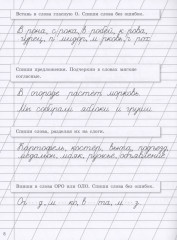 Вставь в слова гласную О. Спиши слова без ошибок.
В рона, с рока, в робей, к рова,
г рох.
Спиши предложения. Подчеркни в словах мягкие
согласные.
В огороде растет морковь.
Мы собирали яблоки и груши.
Спиши слова, разделяя их на слоги.
Картофель, костер, вьюга, подъезд,
медальон, маяк, ружье, объявление.
Впиши в слова ОРО или ОЛО. Спиши слова без ошибок.